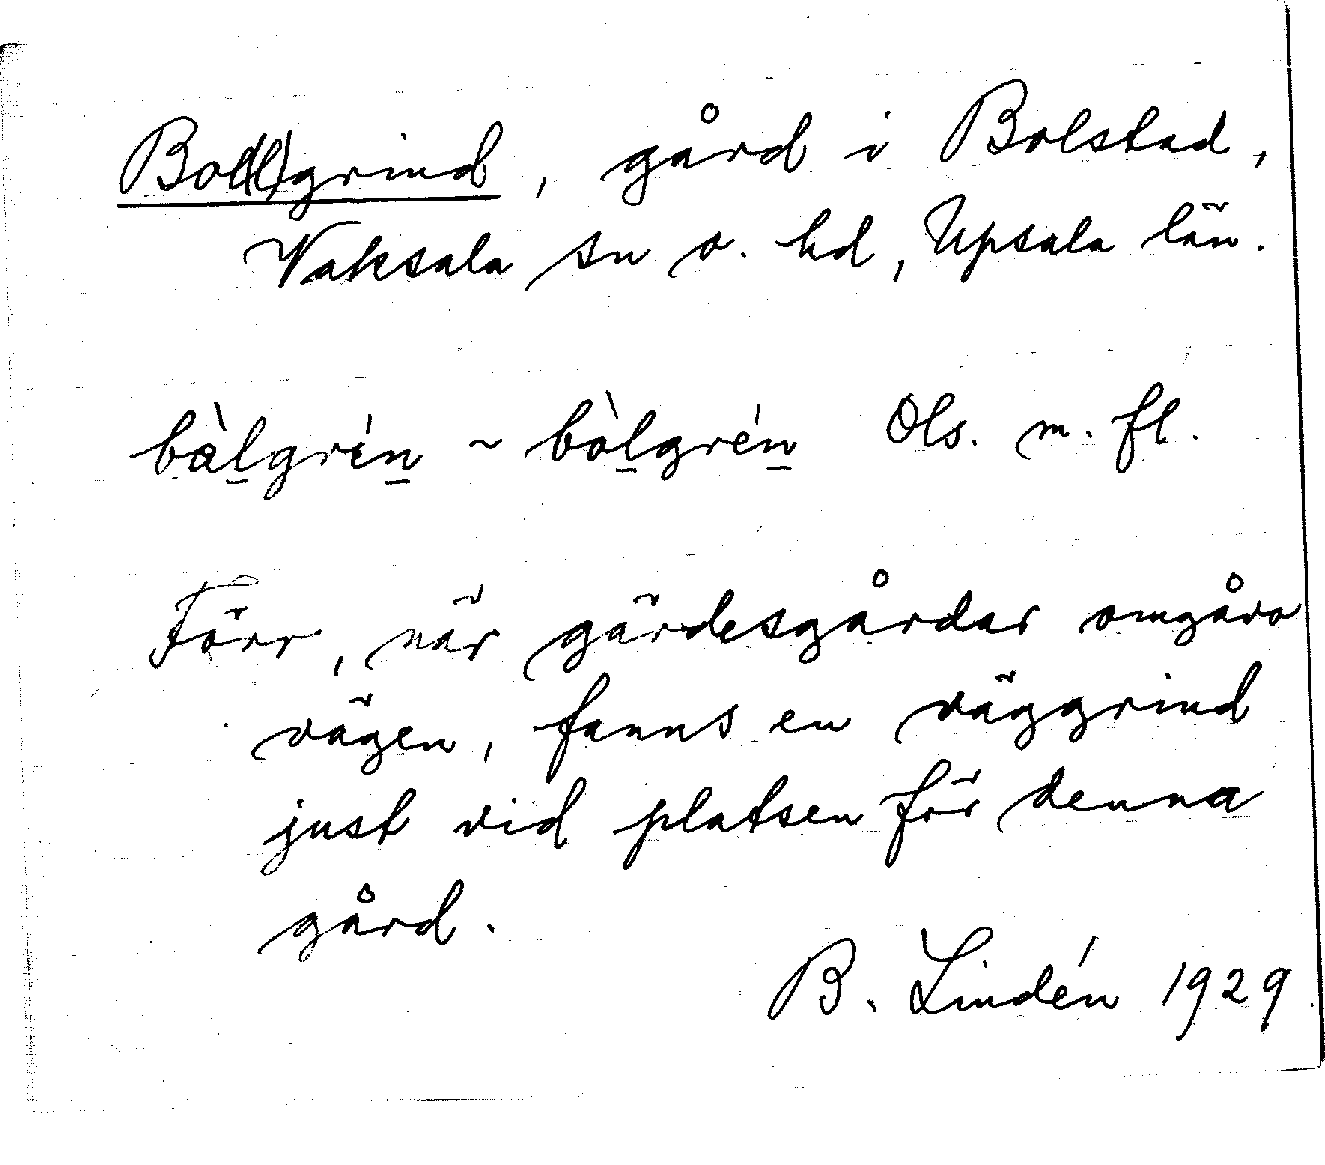 Bol(l)grind, gård i Bolstad,
Vaksala sn o. hd, Upsala län.
bàl̠grén̠ ~ bòl̠grén̠ Ols. m. fl.
Förr, när gärdesgårdar omgåvo
vägen, fanns en väggrind
just vid platsen för denna
gård.
B. Lindén 1929